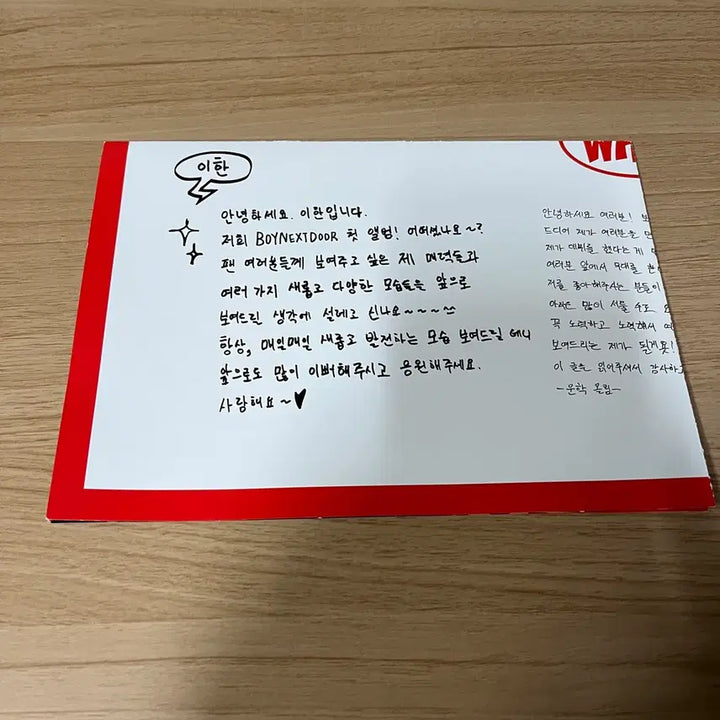 이한
안녕하세요. 이한입니다.
저희 BOYNEXTDOOR 첫 앨범! 어떠셨나요~?
팬 여러분들께 보여주고 싶은 제 매력들과
여러 가지 새롭고 다양한 모습들을 앞으로
보여드릴 생각에 설레고 신나요~~~
항상, 매일매일 새롭고 발전하는 모습 보여드릴 테니
앞으로도 많이 이뻐해주시고 응원해주세요.
사랑해요~♥
안녕하세요 여러분!
드디어 제가 여러분을
제가 데뷔를 했다는게
여러분 앞에서 무대를
저를 좋아해주시는 분들이
아직은 많이 서툴 수도
꼭 노력하고 노력해서
보여드리는 제가 될게요!
이 글을 읽어주셔서 감사하고
-운학 올림-